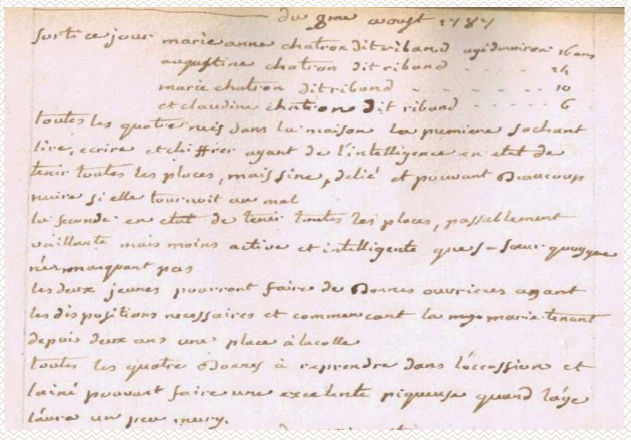 du 8me aoust 1787
sorti ce jour marie anne chatron dit riband agé denviron 16 ans
augustine chatron dit riband - - - - - 14
marie chatron dit riband - - - - - 10
et claudine chatron dit riband - - - - - 6
toutes les quatre nuis dans la maison la pumiere sachant
lire, ecrire et chiffrer ayant de l'intelligence en etat de
tenir toutes les places, mais fine, delié et pouvant Beaucoup
nuire si elle tournoit au mal
la seconde en etat de tenir toutes les places, passablement
vaillante mais moins active et intelligente que sa sœur quoyque
n'en manquant pas
les deux jeunes pourront faire de Bonnes ouvrieres ayant
les dispositions necessaires et commencant la marie tenant
depuis deux ans une place à lacolle
toutes les quatre Bonnes à reprendre dans l'occassion et
lainé pouvant faire une excelente piqueuse quand l'age
laura un peu mury.